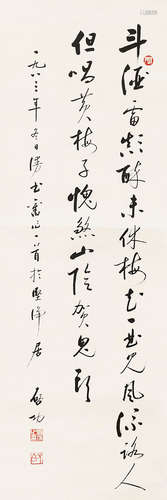 斗酒雷顛醉未休梅花一曲見風流路人
但唱黃梅子愧煞山陰賀鬼頭
一九八三年冬日書一首於堅淨居 啓功